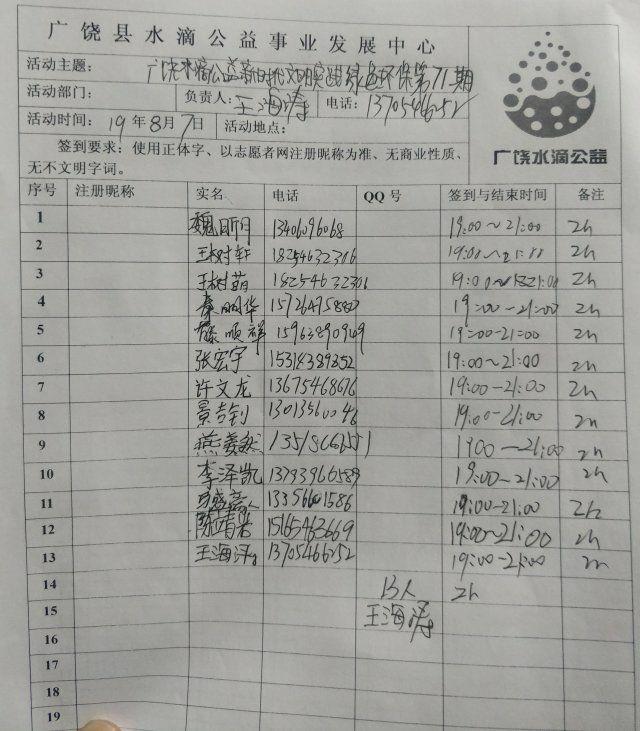 广饶县水滴公益事业发展中心
活动主题： 广饶水滴公益 绿色环保第71期
活动部门： 负责人：王海涛 电话：13705466252
活动时间： 19年8月7日 活动地点：
签到要求：使用正体字、以志愿者网注册昵称为准、无商业性质、
无不文明字词。
广饶水滴公益
序号 注册昵称 实名 电话 QQ号 签到与结束时间 备注
1 魏昕月 13406096068 19:00~21:00 2h
2 王树轩 18254632306 19:00~21:00 2h
3 王树萌 18254632306 2h
4 秦丽华 19:00-21:00 2h
5 滕顺祥 15963890949 19:00-21:00 2h
6 张宏宇 15314389852 19:00~21:00 2h
7 许文龙 13675468676 19:00-21:00 2h
8 景吉钊 13013560046 19:00-21:00 2h
9 燕 1900~21:00 2h
10 李泽凯 13793966589 19:00~21:00 2h
11 19:00-21:00 2h
12 15165463669 19:00-21:00 2h
13 王海涛 13705466252 19:00-21:00 2h
14 13人 2h
15 王海涛
16
17
18
19